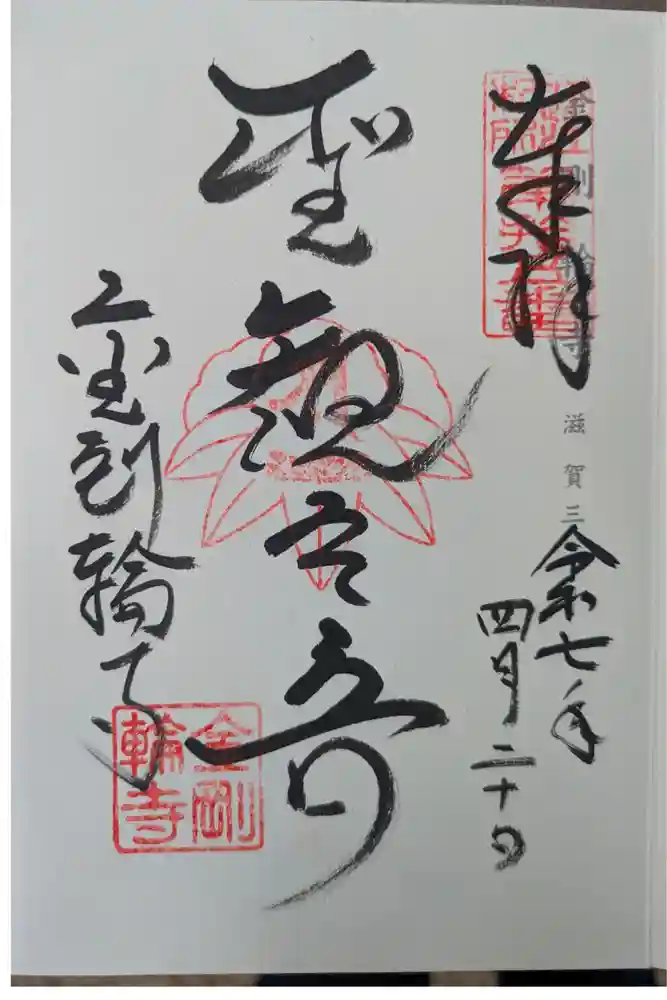 金剛輪寺 滋賀三
奉拝
令和七年
四月二十日
聖観世音
金剛輪寺
金剛
輪寺